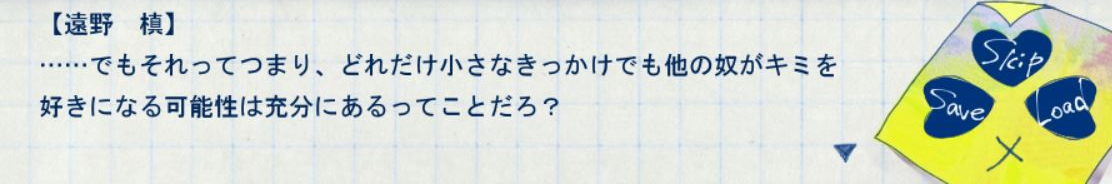 【遠野　槙】
……でもそれってつまり、どれだけ小さなきっかけでも他の奴がキミを
好きになる可能性は充分にあるってことだろ？
Skip
Save
Load